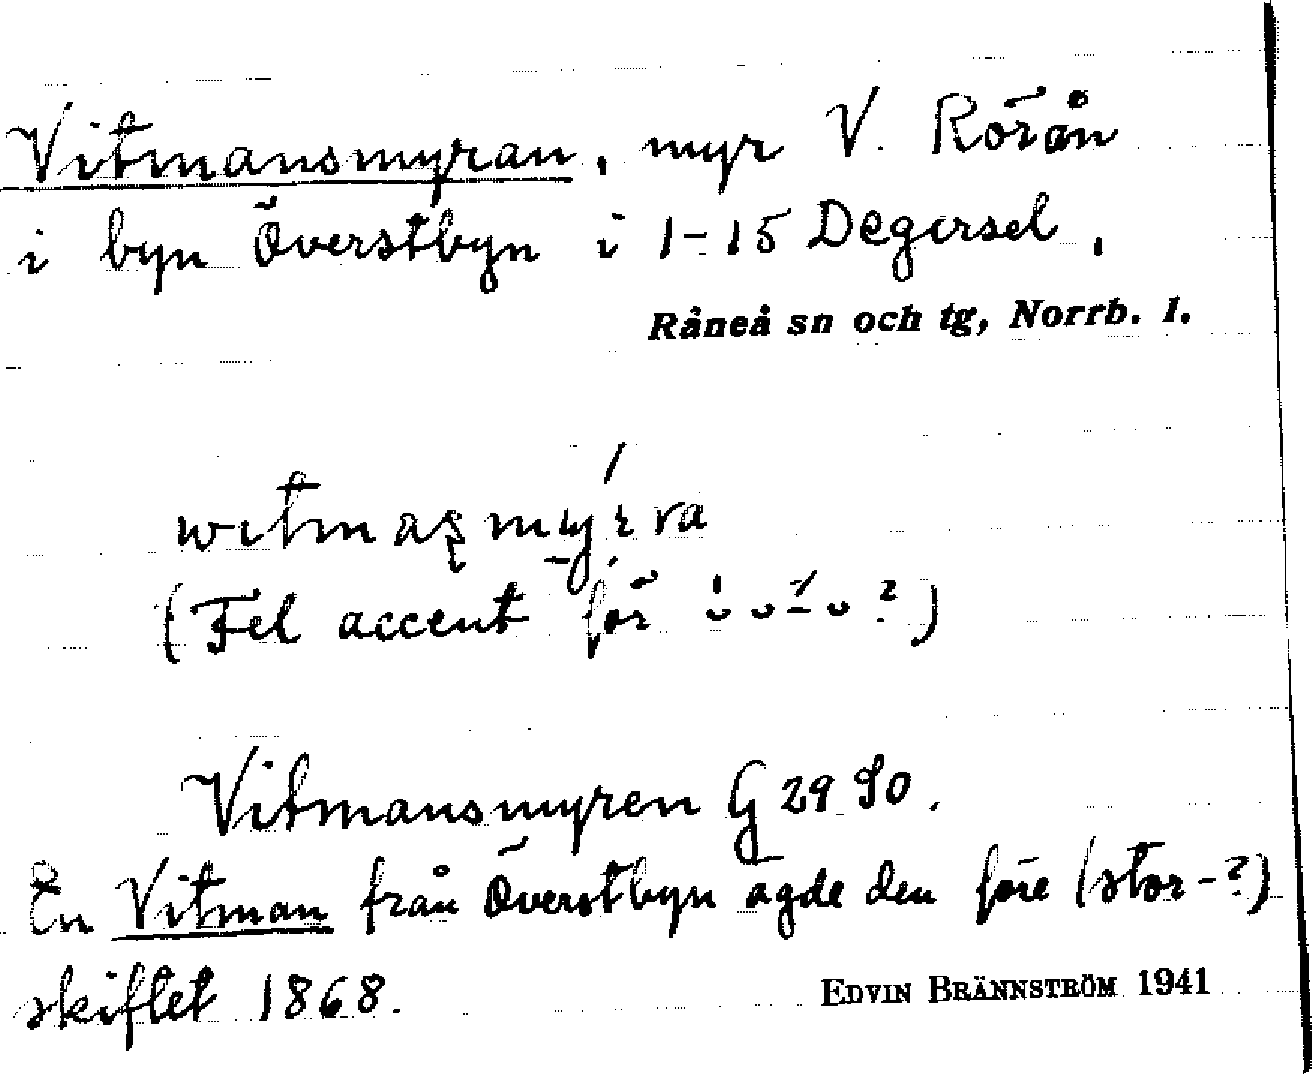 Vitmansmyran, myr V. Rörån
i byn Överstbyn i 1-15 Degersel.
Råneå sn och tg, Norrb. l.
(Fel accent för ?)
Vitmansmyren G 29 SO.
En Vitman från Överstbyn ägde den före (stor-?)
skiftet 1868.
EDVIN BRÄNNSTRÖM 1941